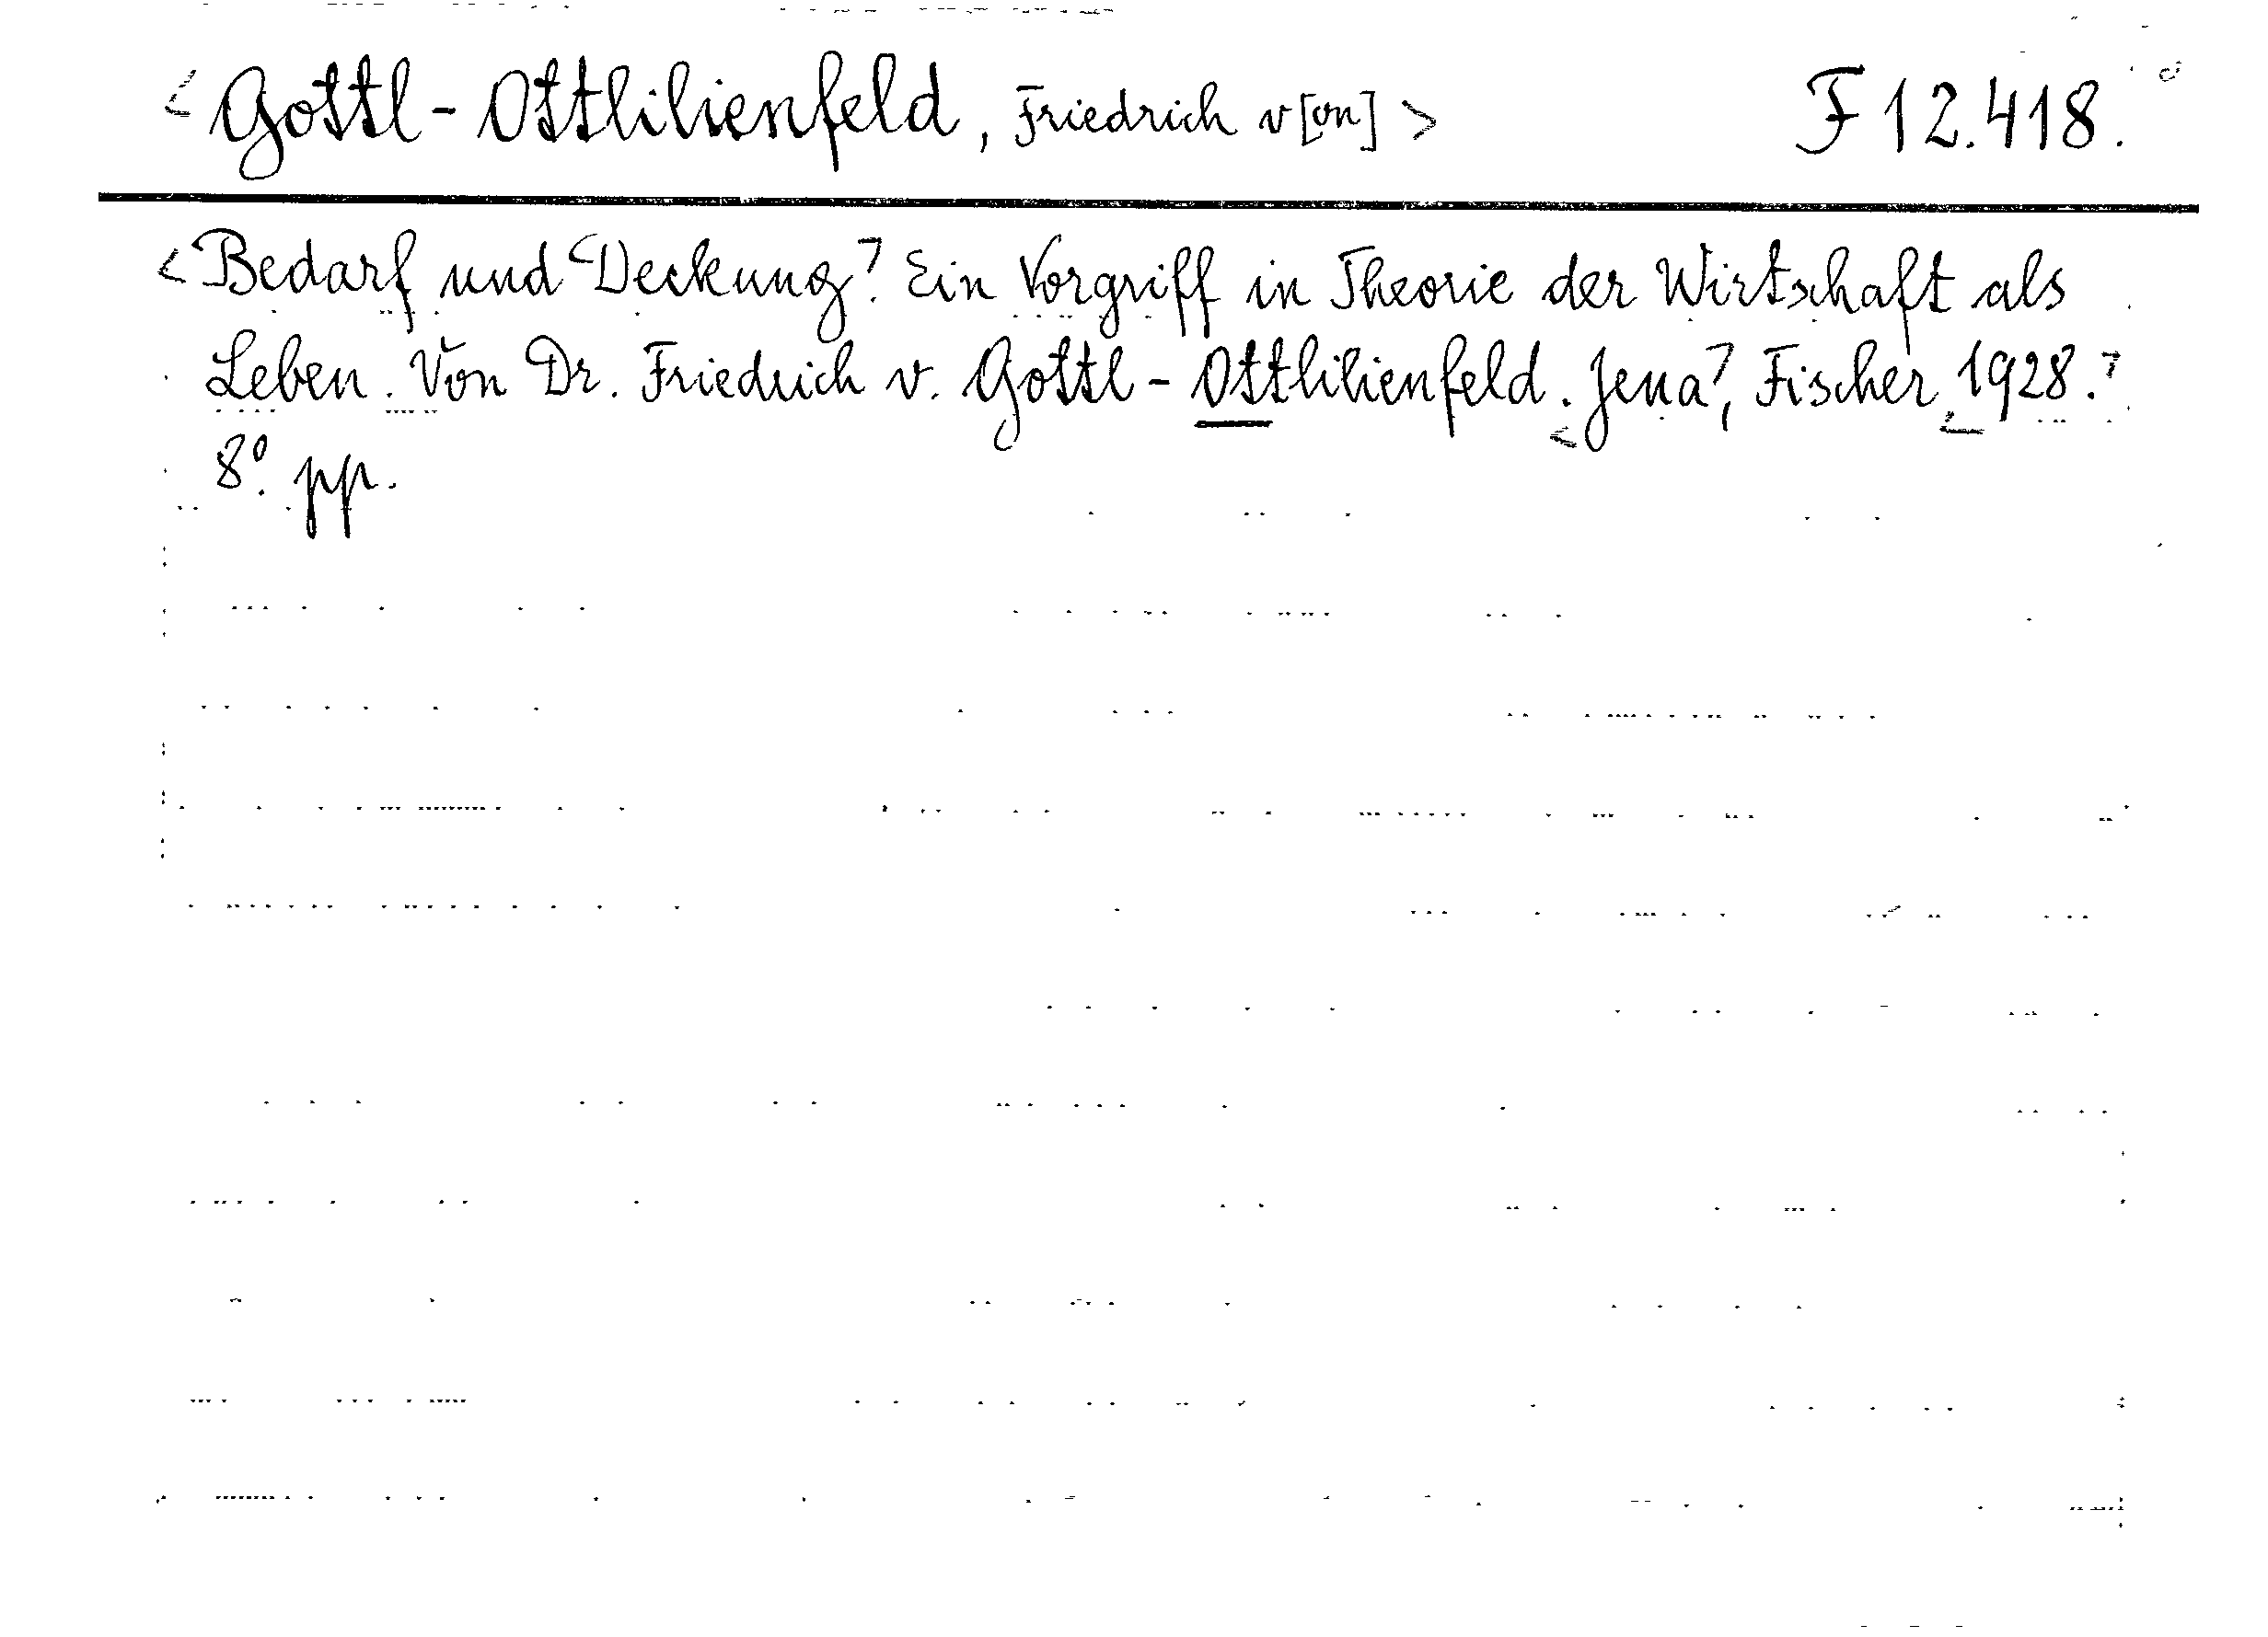 <Gottl-Ottlilienfeld, Friedrich v[on]> F 12.418.
<Bedarf und Deckung. Ein Vorgriff in Theorie der Wirtschaft als
Leben. Von Dr. Friedrich v. Gottl-Ottlilienfeld. Jena, Fischer, 1928.
8°. pp.